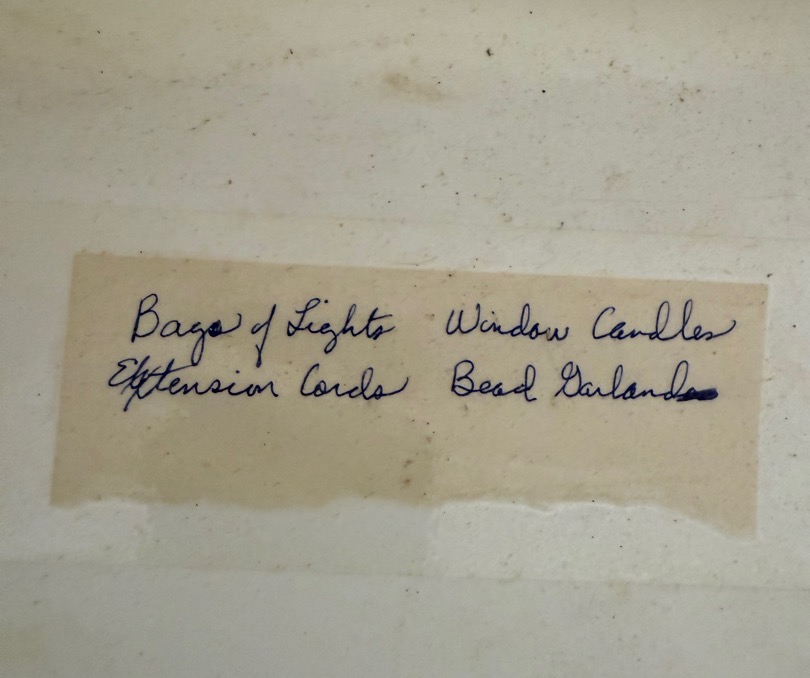 Bags of Lights Window Candles
Extension Cords Bead Garlands